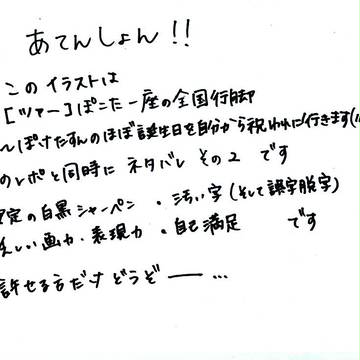 あてんしょん!!
このイラストは
[ツアー]ぽこた一座の全国行脚
〜ぽけたすんのほぼ誕生日を自分から祝われに行きます(
のレポと同時に ネタバレ その2 です
定の白黒シャーペン ・汚い字(そして誤字脱字)
しい画力・表現力 ・自己満足 です
許せる方だけ どうぞ ー ...